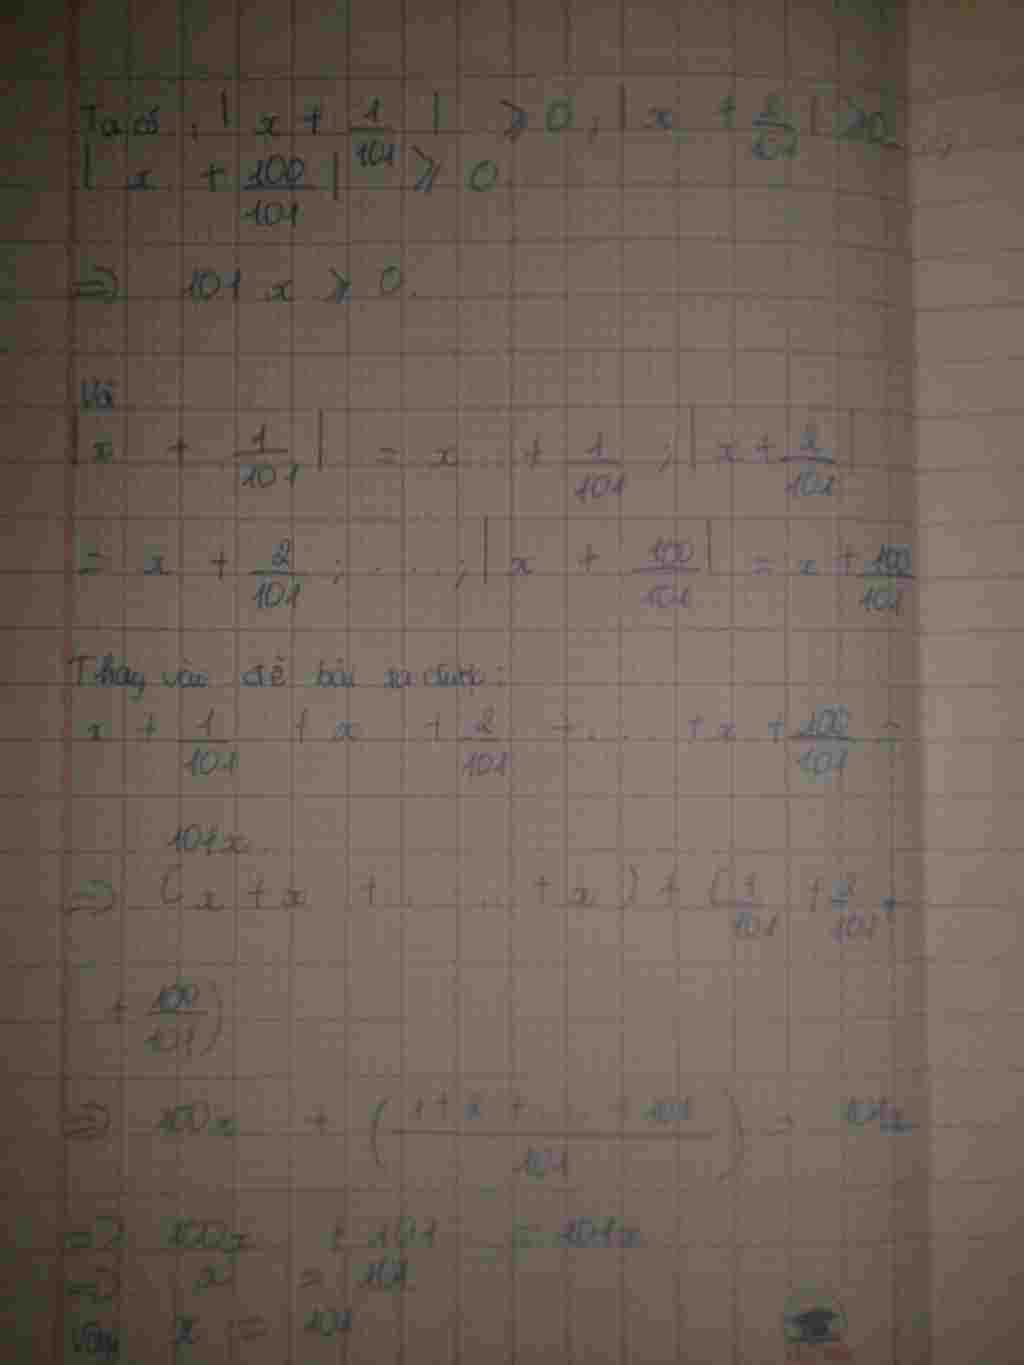 Ta có : | x + 1/101 | ⩾ 0 ; | x + 2/101 | ⩾ 0 ... ;
| x + 100/101 | ⩾ 0.
=> 101 x ⩾ 0.
Và
| x + 1/101 | = x + 1/101 ; | x + 2/101 |
= x + 2/101 ; . . . . ; | x + 100/101 | = x + 100/101
Thay vào đề bài ta được :
x + 1/101 + x + 2/101 + . . . + x + 100/101 =
101x
=> ( x + x + . . . + x ) + ( 1/101 + 2/101 +
+ 100/101 )
=> 100x + ( 1 + 2 + . . . + 101 / 101 ) = 101x
=> 100x + 101 = 101x
=> x = 101
Vậy x = 101